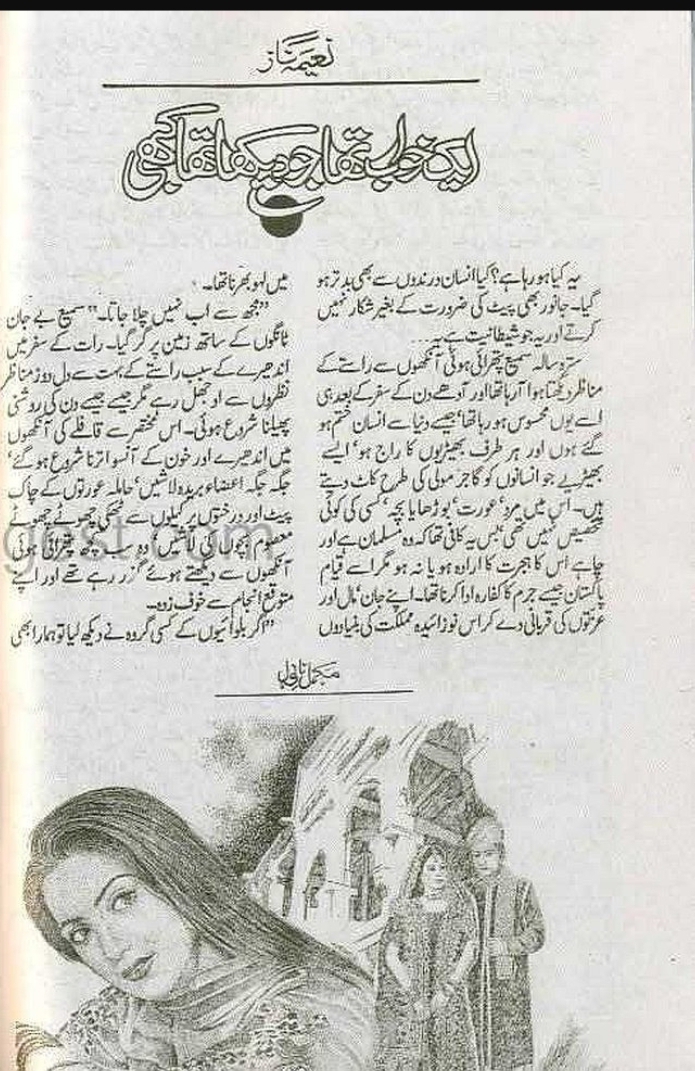 نعیمہ ناز
ایک خواب تھا جو دیکھا تھا کبھی
یہ کیا ہو رہا ہے؟ کیا انسان درندوں سے بھی بدتر ہو
گیا۔ جانور بھی پیٹ کی ضرورت کے بغیر شکار نہیں
کرتے اور یہ جو شیطانیت ہے یہ...
سترہ سالہ سمیع پتھرائی ہوئی آنکھوں سے راستے کے
مناظر دیکھتا ہوا آ رہا تھا اور آدھے دن کے سفر کے بعد ہی
اسے یوں محسوس ہو رہا تھا' جیسے دنیا سے انسان ختم ہو
گئے ہوں اور ہر طرف بھیڑیوں کا راج ہو' ایسے
بھیڑیے جو انسانوں کو گاجر مولی کی طرح کاٹ دیتے
ہیں۔ اس میں مرد' عورت' بوڑھا یا بچہ' کسی کی کوئی
تخصیص نہیں تھی' بس یہ کافی تھا کہ وہ مسلمان ہے اور
چاہے اس کا ہجرت کا ارادہ ہو یا نہ ہو مگر اسے قیام
پاکستان جیسے جرم کا کفارہ ادا کرنا تھا۔ اپنے جان' مال اور
عزتوں کی قربانی دے کر اس نوزائیدہ مملکت کی بنیادوں
میں لہو بھرنا تھا۔
"مجھ سے اب نہیں چلا جاتا۔" سمیع بے جان
ٹانگوں کے ساتھ زمین پر گر گیا۔ رات کے سفر میں
اندھیرے کے سبب راستے کے بہت سے دل دوز مناظر
نظروں سے اوجھل رہے مگر جیسے جیسے دن کی روشنی
پھیلنا شروع ہوئی۔ اس مختصر سے قافلے کی آنکھوں
میں اندھیرے اور خون کے آنسو اترنا شروع ہو گئے'
جگہ جگہ اعضاء بریدہ لاشیں' حاملہ عورتوں کے چاک
پیٹ اور درختوں پر کیلوں سے ٹھنکی چھوٹے چھوٹے
معصوم بچوں کی لاشیں' وہ سب کچھ پتھرائی ہوئی
آنکھوں سے دیکھتے ہوئے گزر رہے تھے اور اپنے
متوقع انجام سے خوف زدہ۔
"اگر بلوائیوں کے کسی گروہ نے دیکھ لیا تو ہمارا بھی
مکمل ناول